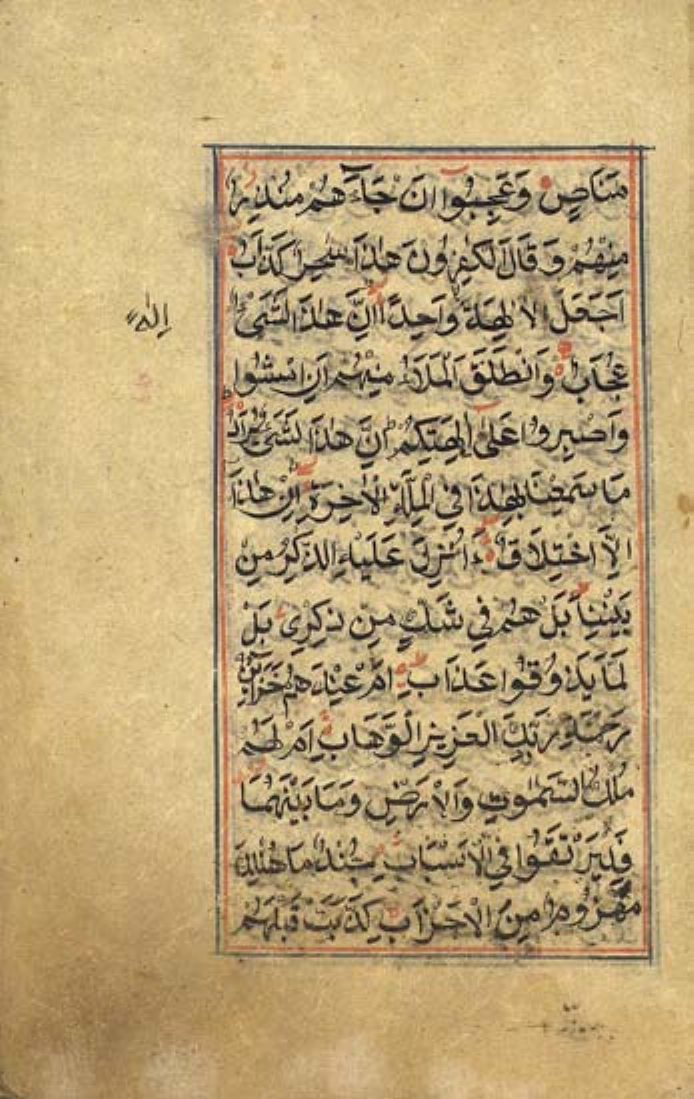 مَنَاصٍ وَعَجِبُوا اَنْ جَاءَهُمْ مُنْذِرٌ
مِنْهُمْ وَقَالَ الْكٰفِرُونَ هٰذَا سٰحِرٌ كَذَّابٌ
اَجَعَلَ الْاٰلِهَةَ وَاحِدًا اِنَّ هٰذَا لَشَيْءٌ
عُجَابٌ وَانْطَلَقَ الْمَلَاُ مِنْهُمْ اَنِ امْشُوا
وَاصْبِرُوا عَلٰى اٰلِهَتِكُمْ اِنَّ هٰذَا لَشَيْءٌ يُرَادُ
مَا سَمِعْنَا بِهٰذَا فِي الْمِلَّةِ الْاٰخِرَةِ اِنْ هٰذَا
اِلَّا اخْتِلَاقٌ ءَاُنْزِلَ عَلَيْهِ الذِّكْرُ مِنْ
بَيْنِنَا بَلْ هُمْ فِي شَكٍّ مِنْ ذِكْرِي بَلْ
لَمَّا يَذُوقُوا عَذَابِ اَمْ عِنْدَهُمْ خَزَائِنُ
رَحْمَةِ رَبِّكَ الْعَزِيزِ الْوَهَّابِ اَمْ لَهُمْ
مُلْكُ السَّمٰوٰتِ وَالْاَرْضِ وَمَا بَيْنَهُمَا
فَلْيَرْتَقُوا فِي الْاَسْبَابِ جُنْدٌ مَا هُنَالِكَ
مَهْزُومٌ مِنَ الْاَحْزَابِ كَذَّبَتْ قَبْلَهُمْ